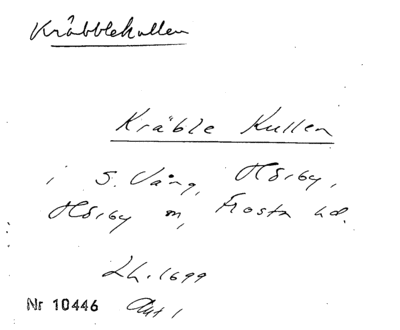 Kräbblekullen
Kräble Kullen
i S. Vång, Hörby,
Hörby sn, Frosta hd.
Lh. 1699
Nr 10446 Akt 1